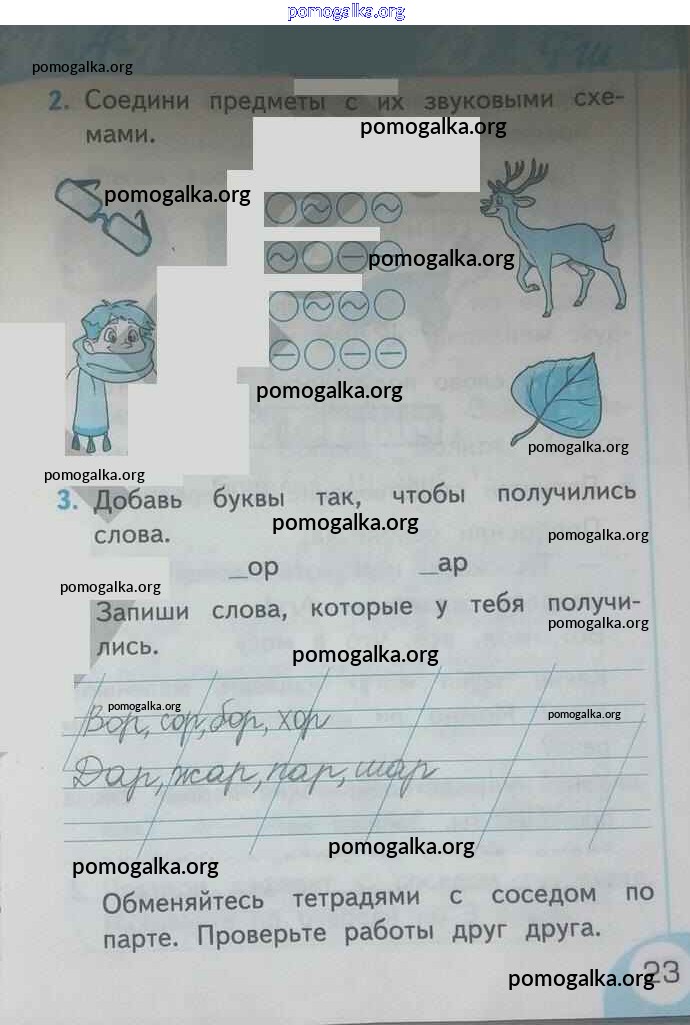 pomogalka.org
pomogalka.org
2. Соедини предметы с их звуковыми схе-
мами.
pomogalka.org
pomogalka.org
pomogalka.org
pomogalka.org
pomogalka.org
pomogalka.org
3. Добавь буквы так, чтобы получились
слова.
pomogalka.org
pomogalka.org
_ор _ар
pomogalka.org
Запиши слова, которые у тебя получи-
лись.
pomogalka.org
pomogalka.org
pomogalka.org
pomogalka.org
Вор, сор, бор, хор
Дар, жар, пар, шар
pomogalka.org
pomogalka.org
Обменяйтесь тетрадями с соседом по
парте. Проверьте работы друг друга.
pomogalka.org
23